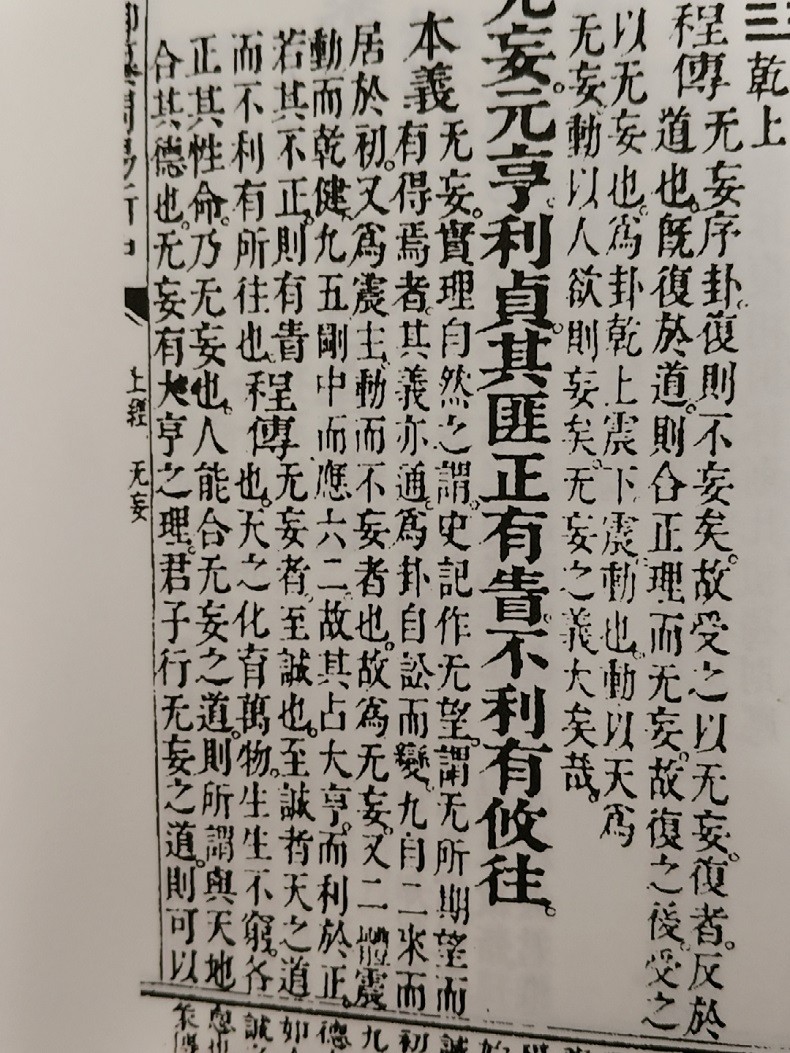 乾上
程傳 无妄序卦復則不妄矣故受之以无妄復者反於
道也既復於道則合正理而无妄故復之後受之
以无妄也為卦乾上震下震動也動以天為
无妄動以人欲則妄矣无妄之義大矣哉
无妄元亨利貞其匪正有眚不利有攸往
本義 无妄實理自然之謂史記作无望謂无所期望而
有得焉者其義亦通為卦自訟而變九自二來而
居於初又為震主動而不妄者也故為无妄又二體震
動而乾健九五剛中而應六二故其占大亨而利於正
若其不正則有眚
而不利有所往也
程傳 无妄者至誠也至誠者天之道
也天之化育萬物生生不窮各
正其性命乃无妄也人能合无妄之道則所謂與天地
合其德也无妄有大亨之理君子行无妄之道則可以
上經 无妄